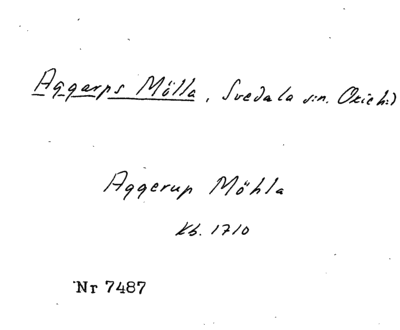 Aggarps Mölla, Svedala sn. Oxie hd
Aggerup Möhla
Kb. 1710
Nr 7487